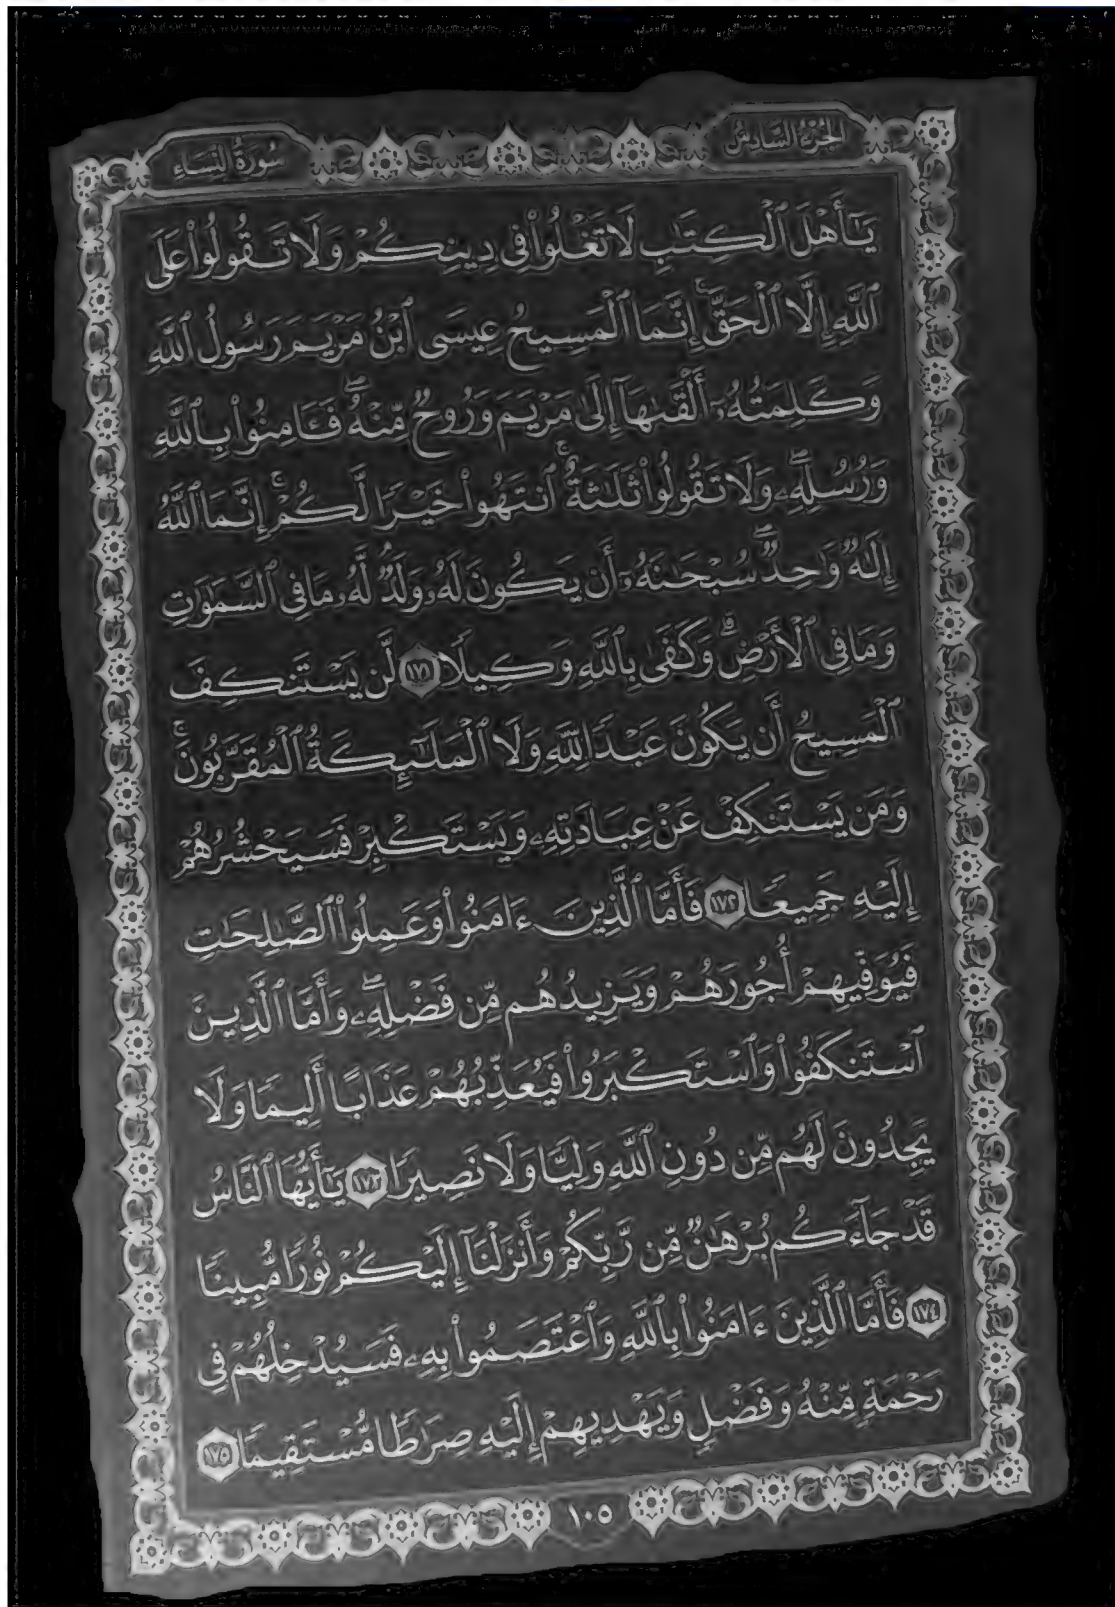 الجُزْءُ السَّادِسُ
سُورَةُ النِّسَاءِ
يَٰٓأَهْلَ ٱلْكِتَٰبِ لَا تَغْلُوا۟ فِى دِينِكُمْ وَلَا تَقُولُوا۟ عَلَى
ٱللَّهِ إِلَّا ٱلْحَقَّ ۚ إِنَّمَا ٱلْمَسِيحُ عِيسَى ٱبْنُ مَرْيَمَ رَسُولُ ٱللَّهِ
وَكَلِمَتُهُۥٓ أَلْقَىٰهَآ إِلَىٰ مَرْيَمَ وَرُوحٌ مِّنْهُ ۖ فَـَٔامِنُوا۟ بِٱللَّهِ
وَرُسُلِهِۦ ۖ وَلَا تَقُولُوا۟ ثَلَٰثَةٌ ۚ ٱنتَهُوا۟ خَيْرًا لَّكُمْ ۚ إِنَّمَا ٱللَّهُ
إِلَٰهٌ وَٰحِدٌ ۖ سُبْحَٰنَهُۥٓ أَن يَكُونَ لَهُۥ وَلَدٌ ۘ لَّهُۥ مَا فِى ٱلسَّمَٰوَٰتِ
وَمَا فِى ٱلْأَرْضِ ۗ وَكَفَىٰ بِٱللَّهِ وَكِيلًا ١٧١ لَّن يَسْتَنكِفَ
ٱلْمَسِيحُ أَن يَكُونَ عَبْدًا لِّلَّهِ وَلَا ٱلْمَلَٰٓئِكَةُ ٱلْمُقَرَّبُونَ ۚ
وَمَن يَسْتَنكِفْ عَنْ عِبَادَتِهِۦ وَيَسْتَكْبِرْ فَسَيَحْشُرُهُمْ
إِلَيْهِ جَمِيعًا ١٧٢ فَأَمَّا ٱلَّذِينَ ءَامَنُوا۟ وَعَمِلُوا۟ ٱلصَّٰلِحَٰتِ
فَيُوَفِّيهِمْ أُجُورَهُمْ وَيَزِيدُهُم مِّن فَضْلِهِۦ ۖ وَأَمَّا ٱلَّذِينَ
ٱسْتَنكَفُوا۟ وَٱسْتَكْبَرُوا۟ فَيُعَذِّبُهُمْ عَذَابًا أَلِيمًا وَلَا
يَجِدُونَ لَهُم مِّن دُونِ ٱللَّهِ وَلِيًّا وَلَا نَصِيرًا ١٧٣ يَٰٓأَيُّهَا ٱلنَّاسُ
قَدْ جَآءَكُم بُرْهَٰنٌ مِّن رَّبِّكُمْ وَأَنزَلْنَآ إِلَيْكُمْ نُورًا مُّبِينًا
١٧٤ فَأَمَّا ٱلَّذِينَ ءَامَنُوا۟ بِٱللَّهِ وَٱعْتَصَمُوا۟ بِهِۦ فَسَيُدْخِلُهُمْ فِى
رَحْمَةٍ مِّنْهُ وَفَضْلٍ وَيَهْدِيهِمْ إِلَيْهِ صِرَٰطًا مُّسْتَقِيمًا ١٧٥
١٠٥